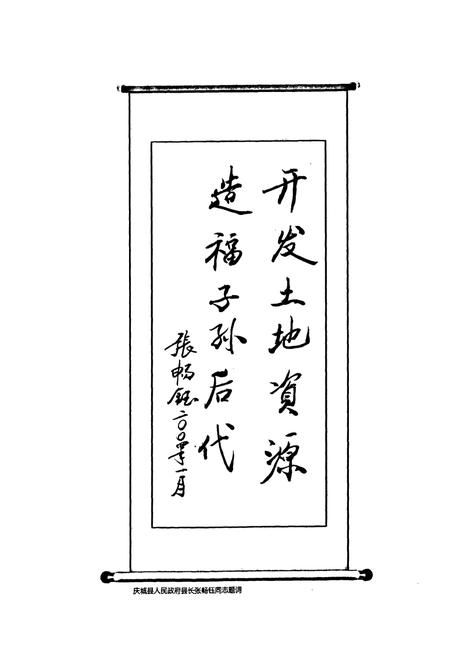 开发土地資源
造福子孙后代
張畅鈺二〇〇四年一月
庆城县人民政府县长张畅钰同志题词